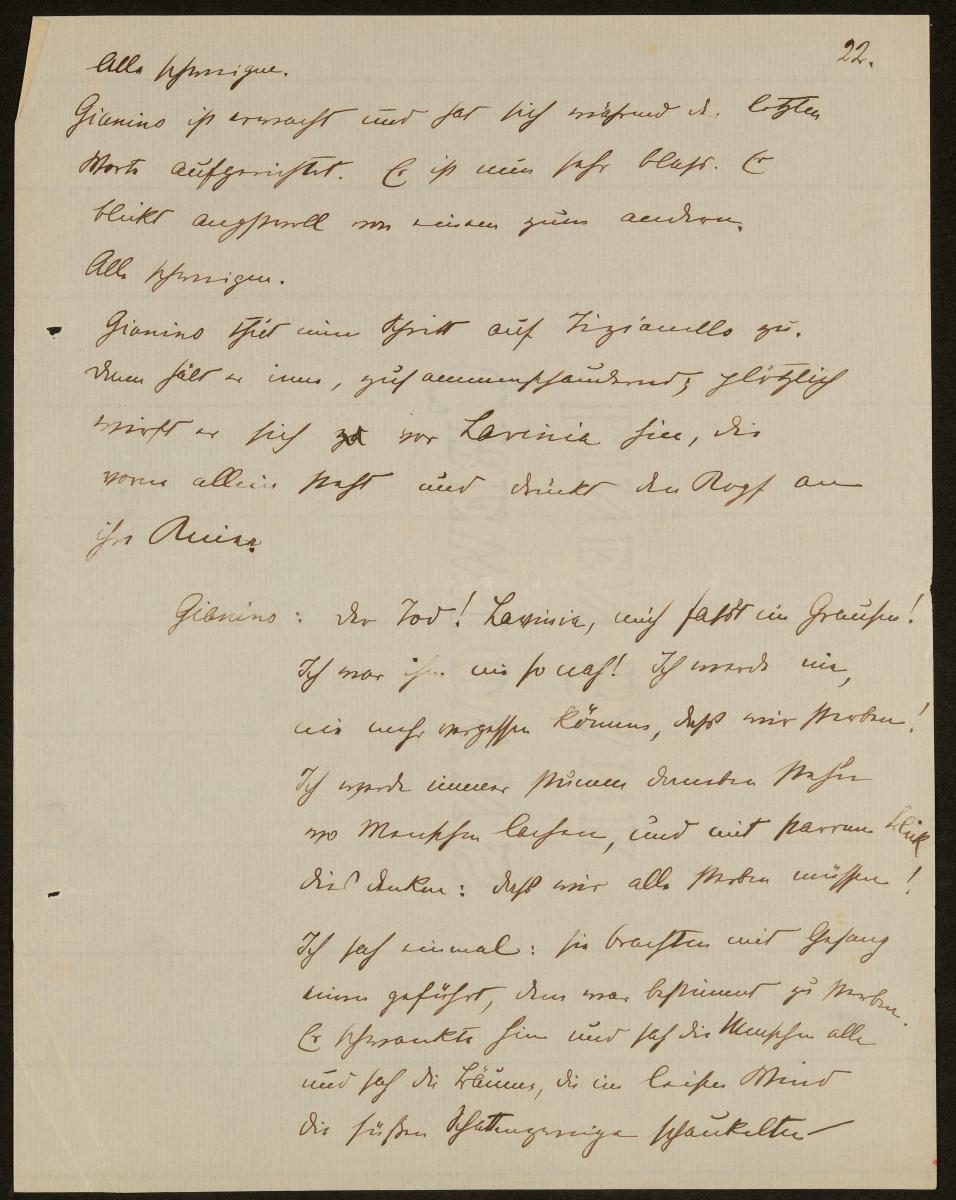 22.
Alle schweigen.
Gianino ist erwacht und hat sich während der letzten
Worte aufgerichtet. Er ist nun sehr blass. Er
blickt angstvoll von einem zum andern.
Alle schweigen.
Gianino thut einen Schritt auf Tizianello zu.
dann hält er inne, zusammenschaudernd; plötzlich
wirft er sich vor Lavinia hin, die
vorne allein steht und drückt den Kopf an
ihre Kniee.
Gianino: der Tod! Lavinia, mich fasst ein Grausen!
Ich war ihm nie so nah! Ich werde nie,
nie mehr vergessen können, dass wir sterben!
Ich werde immer stumm daneben stehen
wo Menschen lachen, und mit starrem Blick
dies denken: dass wir alle sterben müssen!
Ich sah einmal: sie brachten mit Gesang
einen geführt, dem war bestimmt zu sterben.
Er schwankte hin und sah die Menschen alle
und sah die Bäume, die im leisen Wind
die süßen Schattenzweige schaukelten